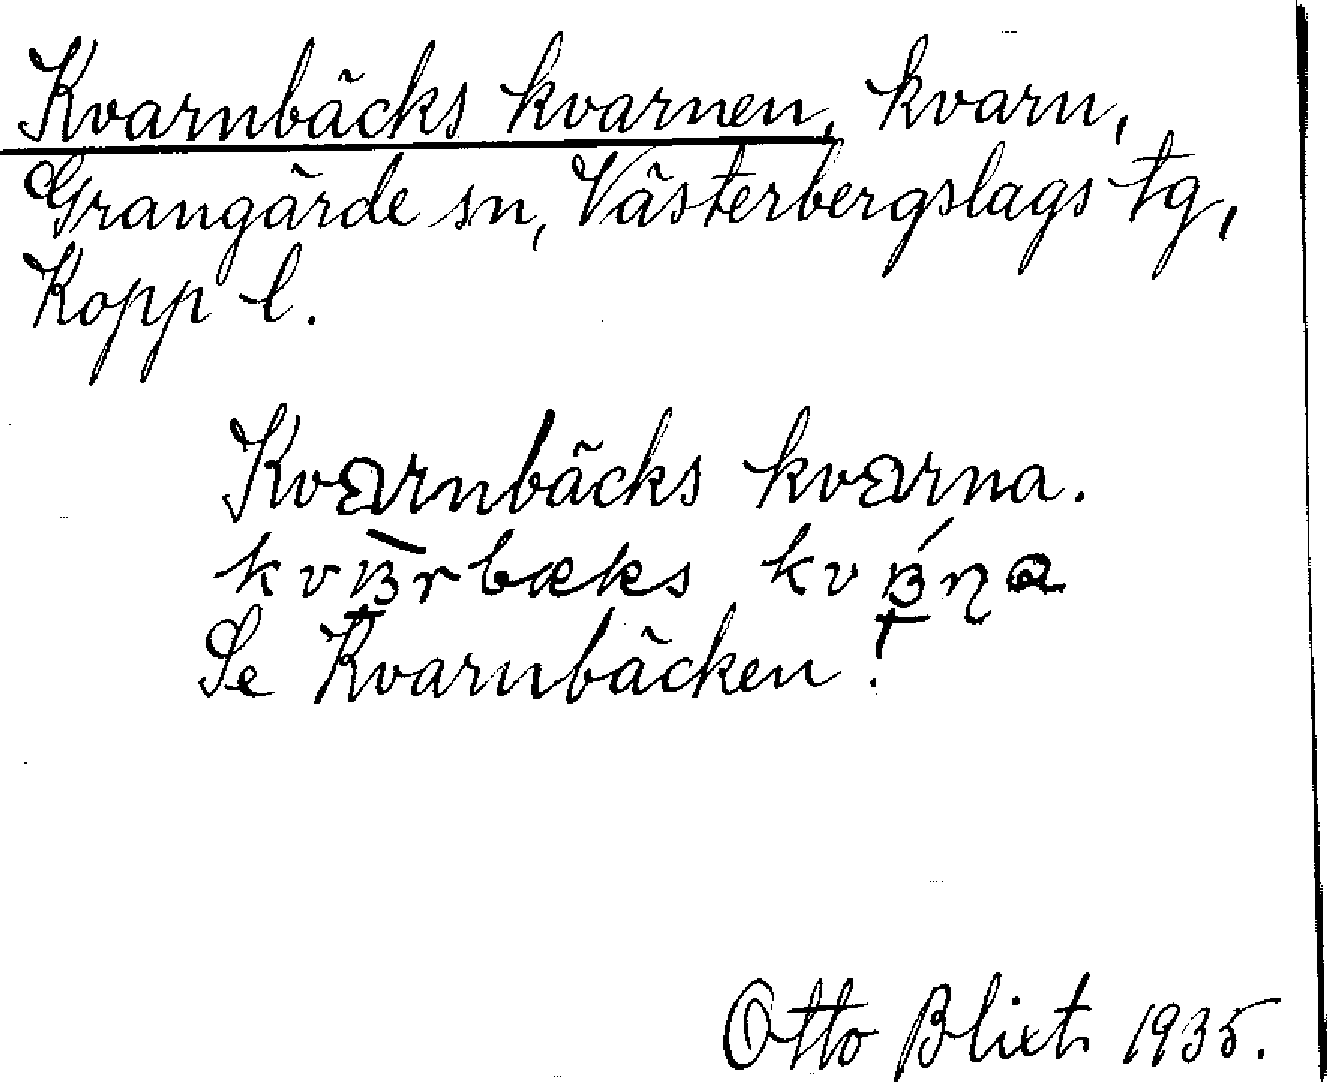 Kvarnbäcks kvarnen, kvarn,
Grangärde sn, Västerbergslags tg,
Kopp l.
Kvarnbäcks kvarna.
Se Kvarnbäcken!
Otto Blixt 1935.